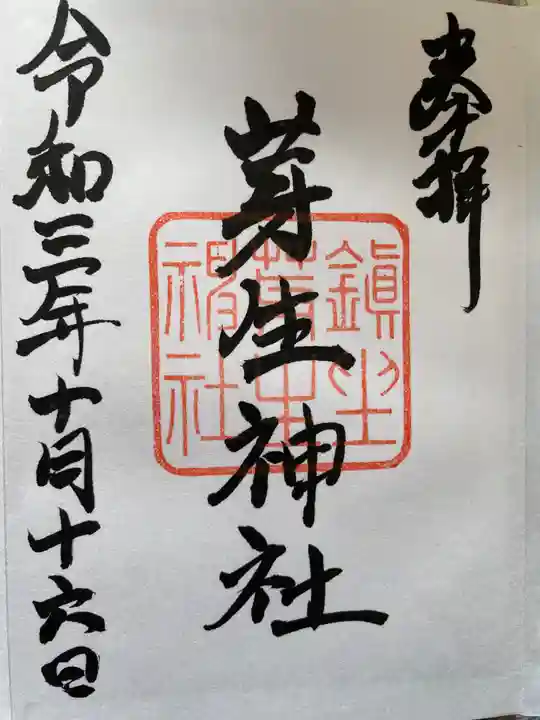 奉拝
芽生神社
令和三年十月十六日
鎮坐
社